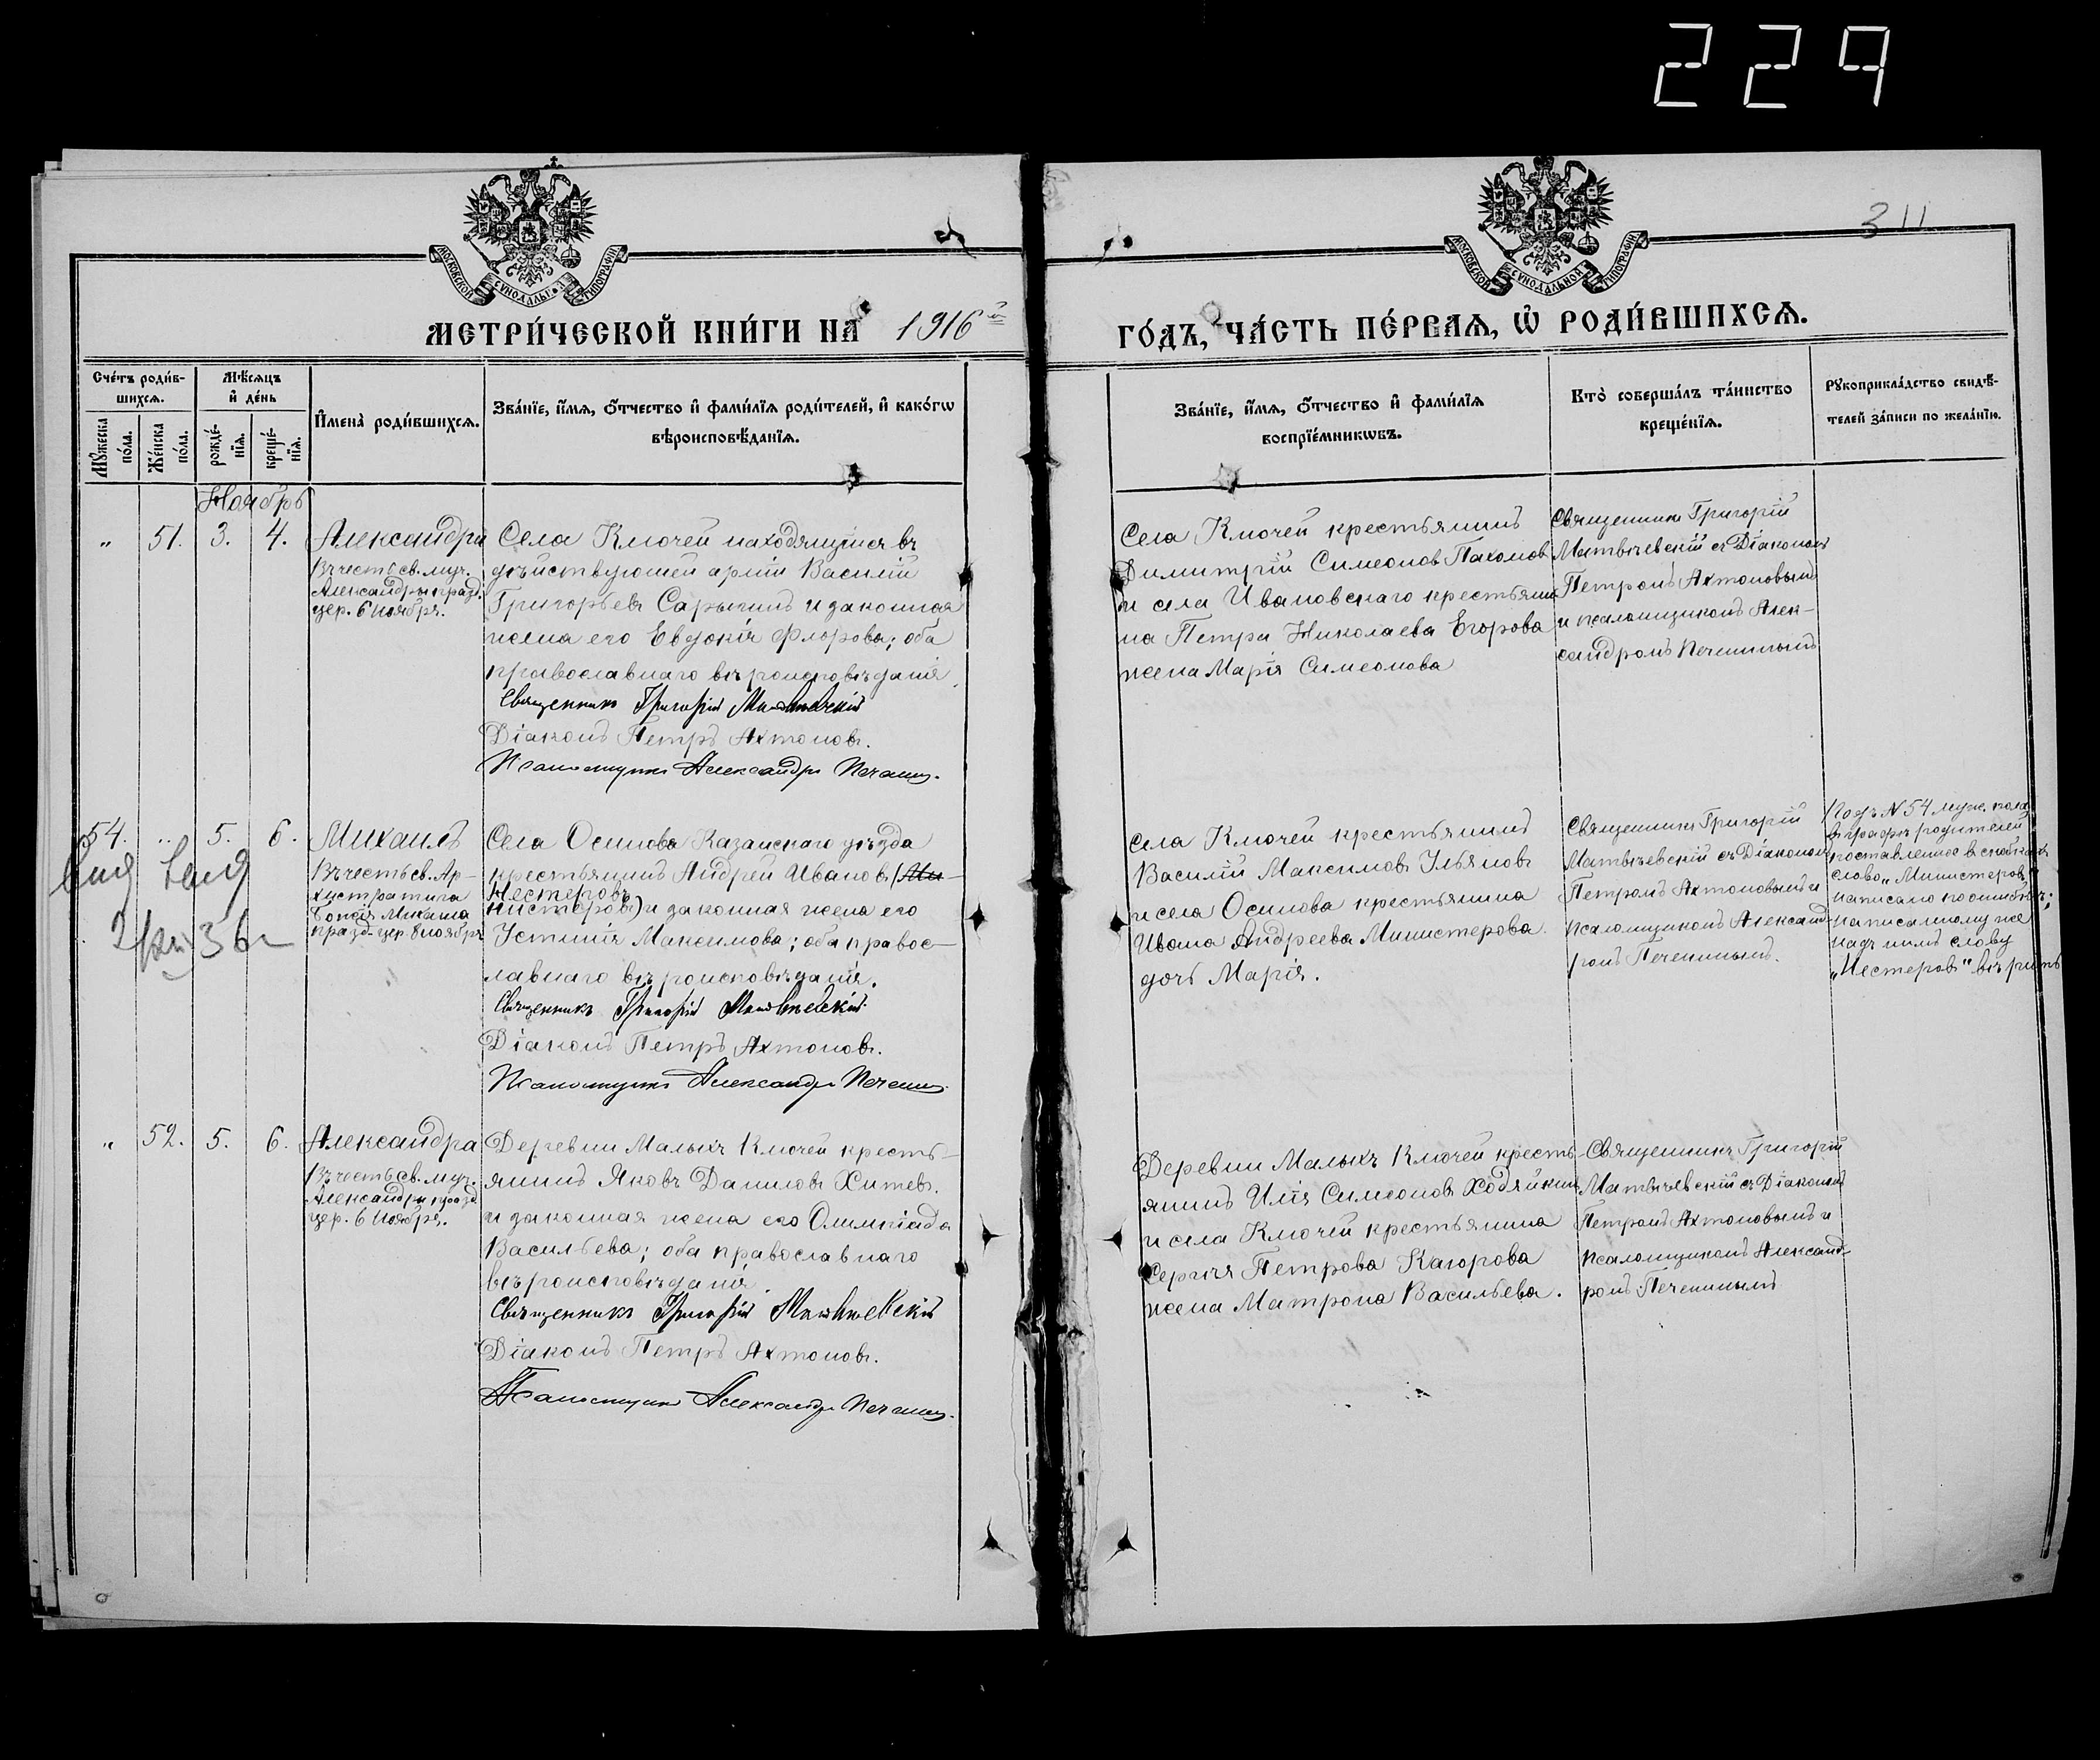 229
311
МОСКОВСКОЙ СѴНОДАЛЬНОЙ ТИПОГРАФІИ
МОСКОВСКОЙ СѴНОДАЛЬНОЙ ТИПОГРАФІИ
МЕТРИ́ЧЕСКОЙ КНИ́ГИ НА 1916й
ГО́ДЪ, ЧА́СТЬ ПЕ́РВАѦ, Ѡ҆ РОДИ́ВШИХСѦ.
Сче́тъ роди́в-
шихсѧ.
Мѣ́сѧцъ
и҆ де́нь
Мꙋ́жеска
по́ла.
Же́нска
по́ла.
рожде́-
нїѧ.
креще́-
нїѧ.
И҆мена̀ роди́вшихсѧ.
Зва́нїе, и҆́мѧ, ѻ҆́тчество и҆ фами́лїѧ роди́телей, и҆ како́гѡ
вѣроисповѣ́данїѧ.
Зва́нїе, и҆́мѧ, ѻ҆́тчество и҆ фами́лїѧ
воспрїе́мникѡвъ.
Кто̀ соверша́лъ та́инство
креще́нїѧ.
Рꙋкоприкла́дство свидѣ́-
телей за́писи по жела́нїю.
Ноябрь
" 51. 3. 4.
Александра
Въ честь св. муч.
Александры празд.
цер. 6 ноября.
Села Ключей находящійся въ
дѣйствующей арміи Василій
Григорьевъ Сарычинъ и законная
жена его Евдокія Флорова; оба
православнаго вѣроисповѣданія.
Священникъ Григорій Матвѣевскій
Діаконъ Петръ Актоновъ.
Псаломщикъ Александръ Печенинъ.
Села Ключей крестьянинъ
Димитрій Симеоновъ Пахомовъ
и села Ивановскаго крестьяни-
на Петра Николаева Егорова
жена Марія Симеонова
Священникъ Григорій
Матвѣевскій съ Діакономъ
Петромъ Актоновымъ
и псаломщикомъ Алек-
сандромъ Печенинымъ
54. " 5. 6.
Михаилъ
Въ честь св. Ар-
хистратига
Божія Михаила
празд. цер. 8 ноября
36г
Села Осинова Казанскаго уѣзда
крестьянинъ Андрей Ивановъ (Ми-
Нестеровъ
нистеровъ) и законная жена его
Устинія Максимова; оба правос-
лавнаго вѣроисповѣданія.
Священникъ Григорій Матвѣевскій
Діаконъ Петръ Актоновъ.
Псаломщикъ Александръ Печенинъ.
Села Ключей крестьянинъ
Василій Максимовъ Ульяновъ
и села Осинова крестьянина
Ивана Андреева Министерова
дочь Марія.
Священникъ Григорій
Матвѣевскій съ Діакономъ
Петромъ Актоновымъ и
псаломщикомъ Александ-
ромъ Печенинымъ.
Подъ № 54 муж. пола
въ графѣ родителей
поставленное въ скобкахъ
слово „Министеровъ"
написано по ошибкѣ;
написанному же
надъ нимъ слову
„Нестеровъ" вѣрить
" 52. 5. 6.
Александра
Въ честь св. муч.
Александры празд.
цер. 6 ноября.
Деревни Малыхъ Ключей кресть-
янинъ Яковъ Даниловъ Хитевъ.
и законная жена его Олимпіада
Васильева; оба православнаго
вѣроисповѣданія.
Священникъ Григорій Матвѣевскій
Діаконъ Петръ Актоновъ.
Псаломщикъ Александръ Печенинъ.
Деревни Малыхъ Ключей кресть-
янинъ Илія Симеоновъ Ходяйкинъ
и села Ключей крестьянина
Сергія Петрова Каюрова
жена Матрона Васильева.
Священникъ Григорій
Матвѣевскій съ Діакономъ
Петромъ Актоновымъ и
псаломщикомъ Александ-
ромъ Печенинымъ